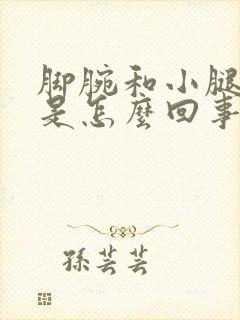 脚腕和小腿
是怎麼回事
孫芸芸